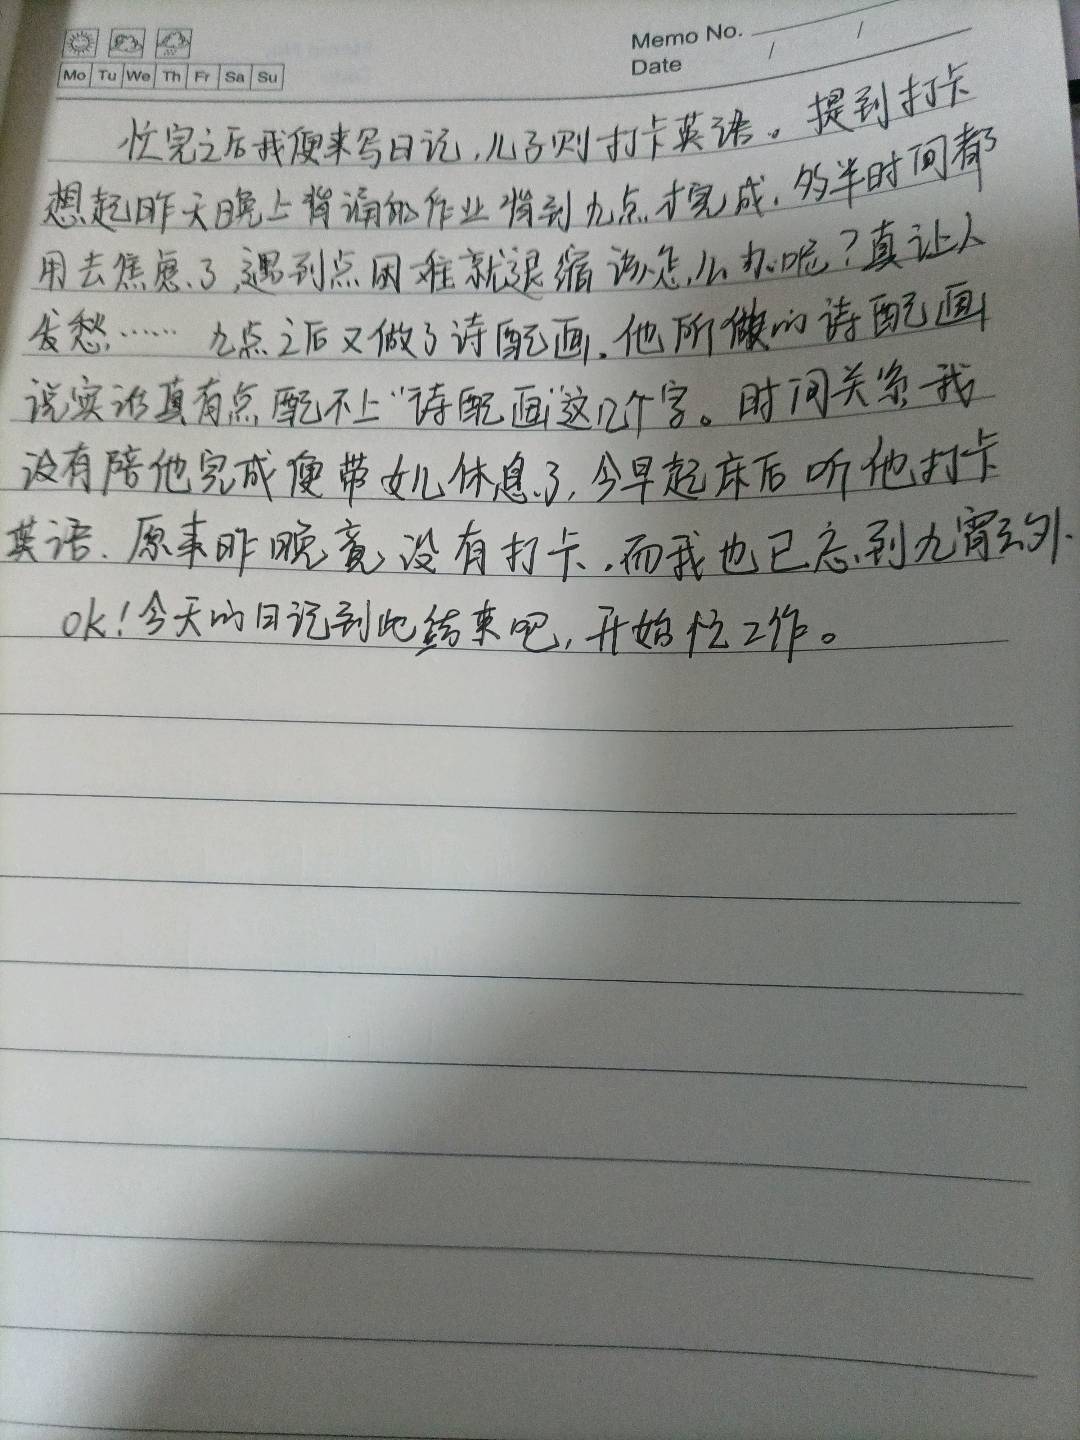 Memo No.
Mo Tu We Th Fr Sa Su
Date / /
忙完之后我便来写日记,儿子则打卡英语。提到打卡
想起昨天晚上背诵的作业背到九点才完成,多半时间都
用去焦虑了,遇到点困难就退缩该怎么办呢?真让人
发愁…… 九点之后又做了诗配画,他所做的诗配画
说实话真有点配不上“诗配画”这几个字。时间关系我
没有陪他完成便带女儿休息了,今早起床后听他打卡
英语、原来昨晚竟没有打卡,而我也已忘到九宵云外.
ok!今天的日记到此结束吧,开始忙工作。